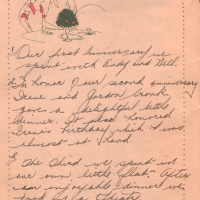 Our first anniversary we
spent with Andy and Nell.
In honor of our second anniversary
Irene and Gordon Cronk
gave a delightful little
dinner. It also honored
Irene's birthday which was
almost at hand.
The third we spent in
our own little flat. After
an enjoyable dinner we